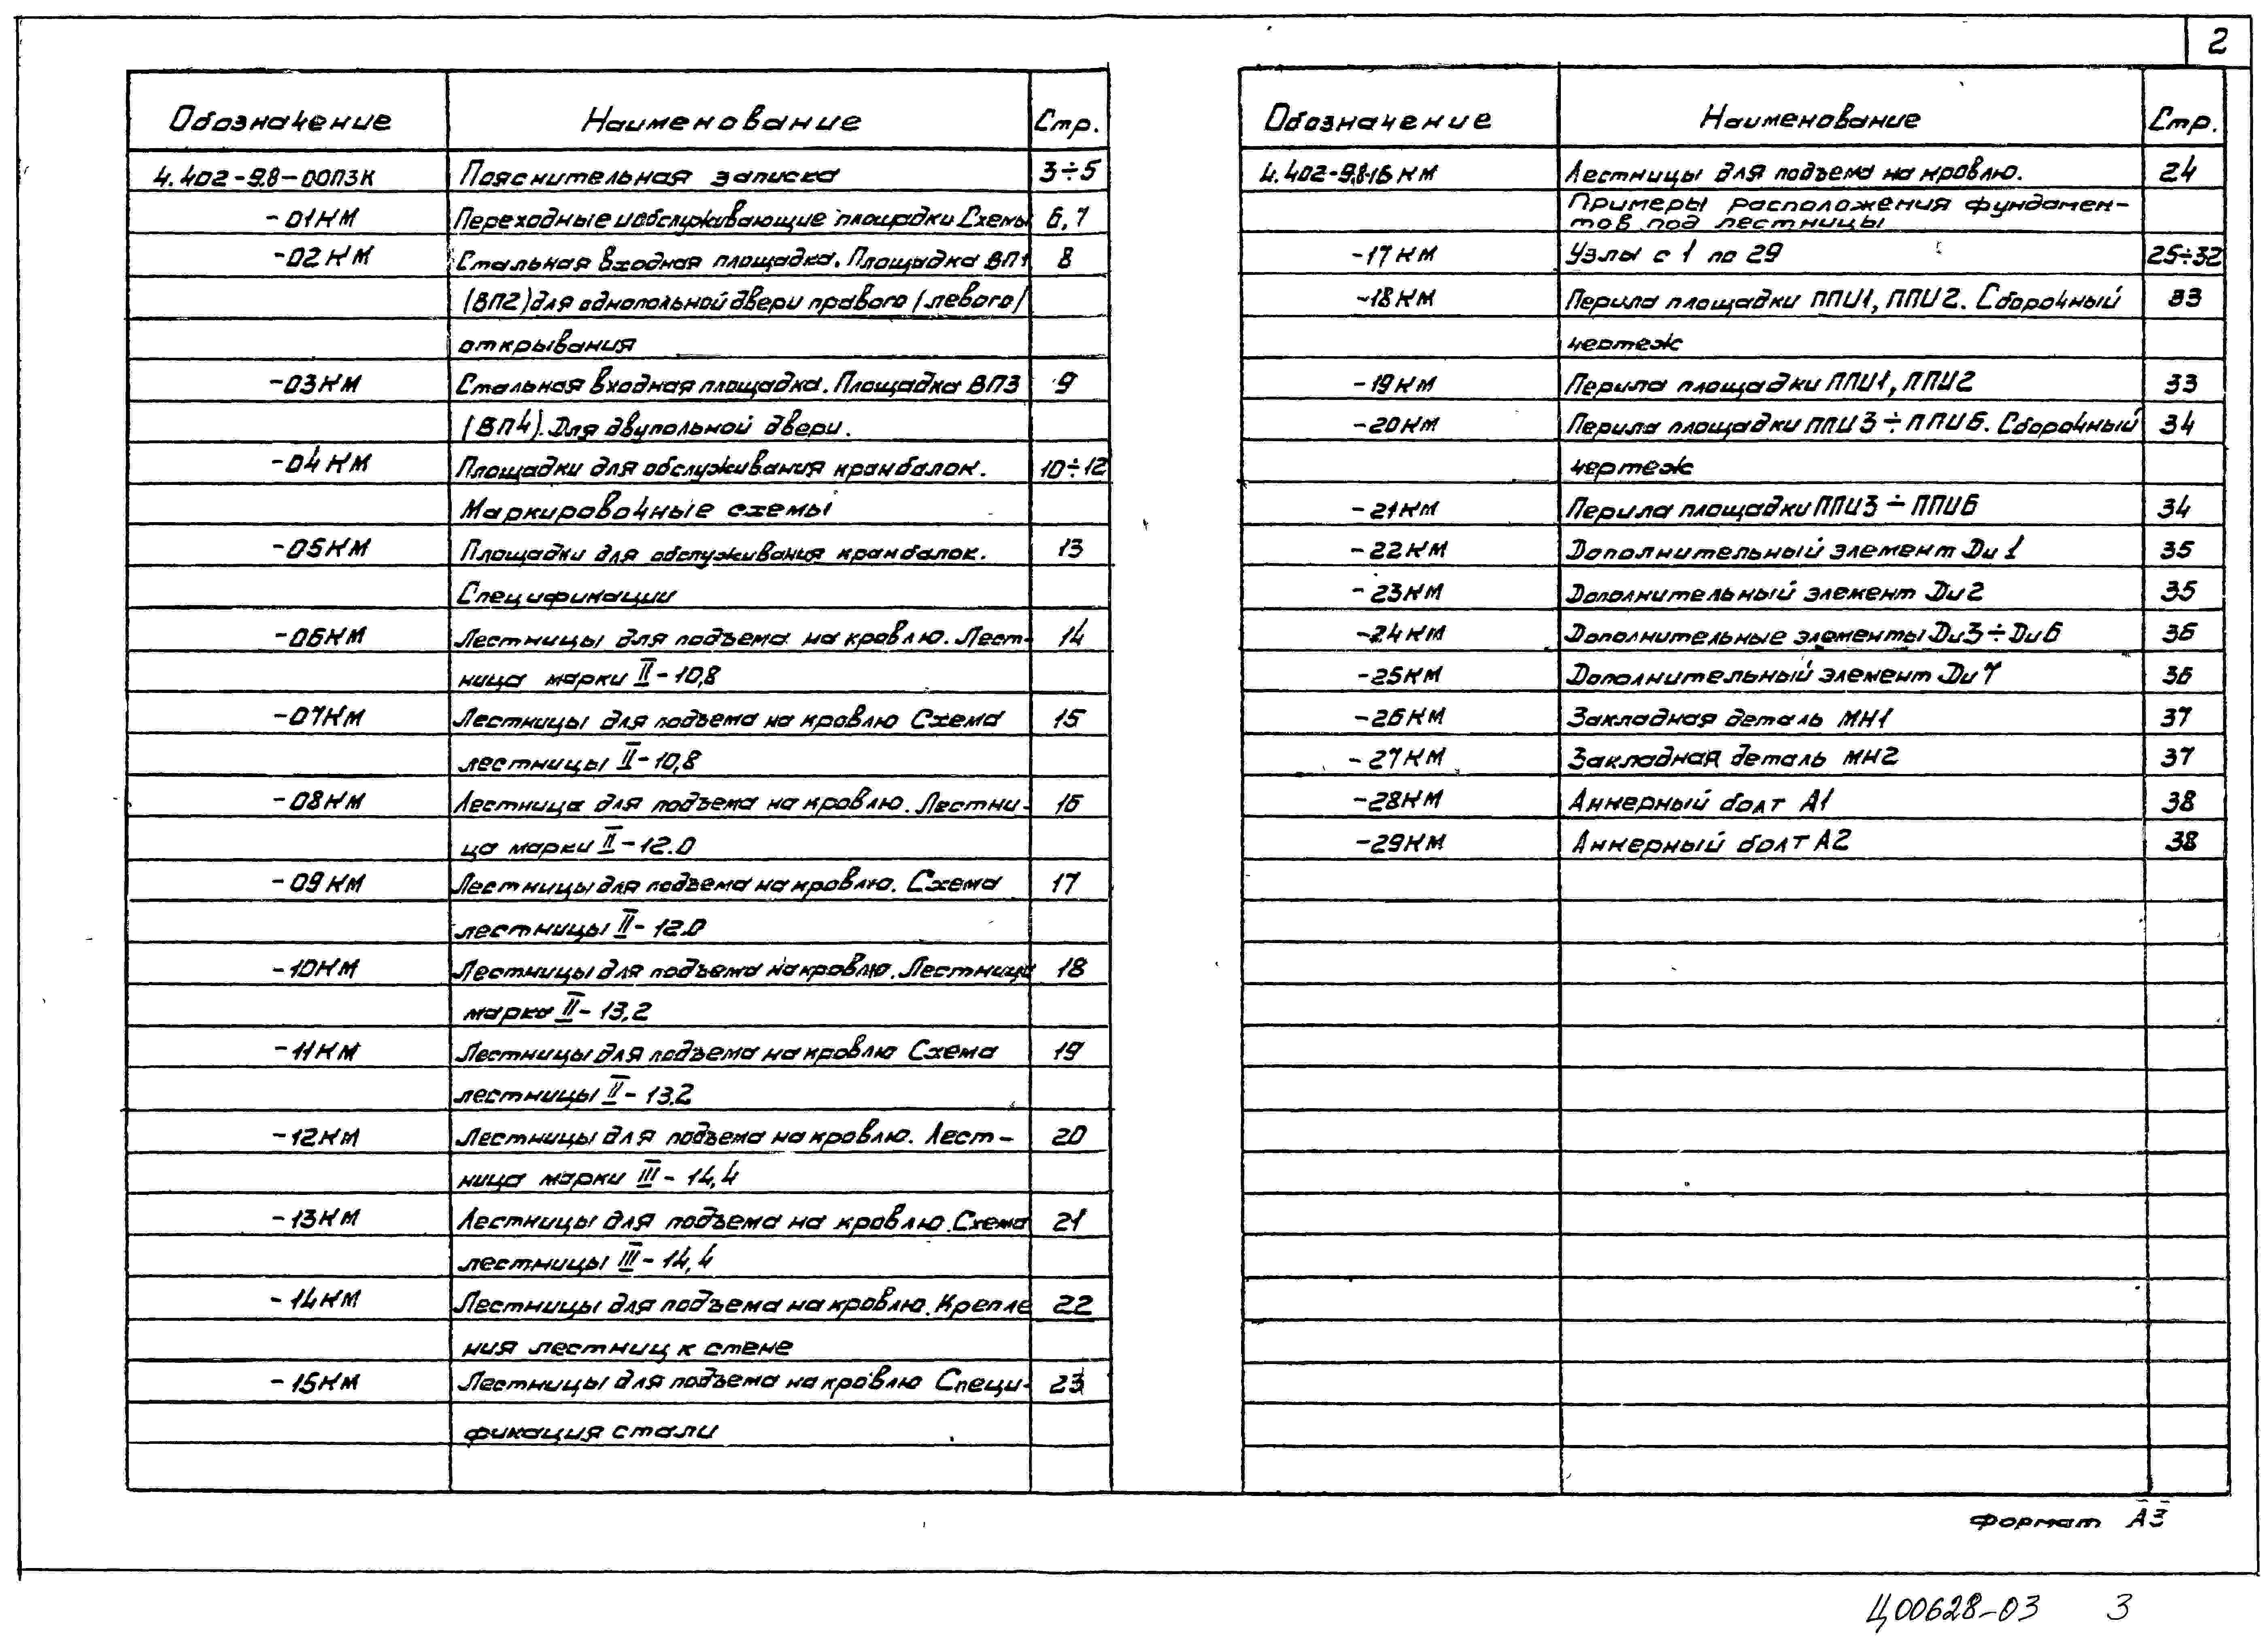 2
Обозначение Наименование Стр.
4.402-9.8-00ПЗК Пояснительная записка 3÷5
-01КМ Переходные и обслуживающие площадки Схемы 6,7
-02КМ Стальная входная площадка. Площадка ВП1 8
(ВП2) для однопольной двери правого (левого)
открывания
-03КМ Стальная входная площадка. Площадка ВП3 9
(ВП4). Для двупольной двери.
-04КМ Площадки для обслуживания кранбалок. 10÷12
Маркировочные схемы
-05КМ Площадки для обслуживания кранбалок. 13
Спецификации
-06КМ Лестницы для подъема на кровлю. Лест- 14
ница марки II-10,8
-07КМ Лестницы для подъема на кровлю Схема 15
лестницы II-10,8
-08КМ Лестница для подъема на кровлю. Лестни- 16
ца марки II-12.0
-09КМ Лестницы для подъема на кровлю. Схема 17
лестницы II-12.0
-10КМ Лестницы для подъема на кровлю. Лестница 18
марка II-13,2
-11КМ Лестницы для подъема на кровлю Схема 19
лестницы II-13.2
-12КМ Лестницы для подъема на кровлю. Лест- 20
ница марки III-14,4
-13КМ Лестницы для подъема на кровлю. Схема 21
лестницы III-14,4
-14КМ Лестницы для подъема на кровлю. Крепле 22
ния лестниц к стене
-15КМ Лестницы для подъема на кровлю Специ- 23
фикация стали
Обозначение Наименование Стр.
4.402-9.8-16КМ Лестницы для подъема на кровлю. 24
Примеры расположения фундамен-
тов под лестницы
-17КМ Узлы с 1 по 29 25÷32
-18КМ Перила площадки ППИ1, ППИ2. Сборочный 33
чертеж
-19КМ Перила площадки ППИ1, ППИ2 33
-20КМ Перила площадки ППИ3÷ППИ6. Сборочный 34
чертеж
-21КМ Перила площадки ППИ3÷ППИ6 34
-22КМ Дополнительный элемент Ди1 35
-23КМ Дополнительный элемент Ди2 35
-24КМ Дополнительные элементы Ди3÷Ди6 36
-25КМ Дополнительный элемент Ди7 36
-26КМ Закладная деталь МН1 37
-27КМ Закладная деталь МН2 37
-28КМ Анкерный болт А1 38
-29КМ Анкерный болт А2 38
формат А3
Ц00628-03 3